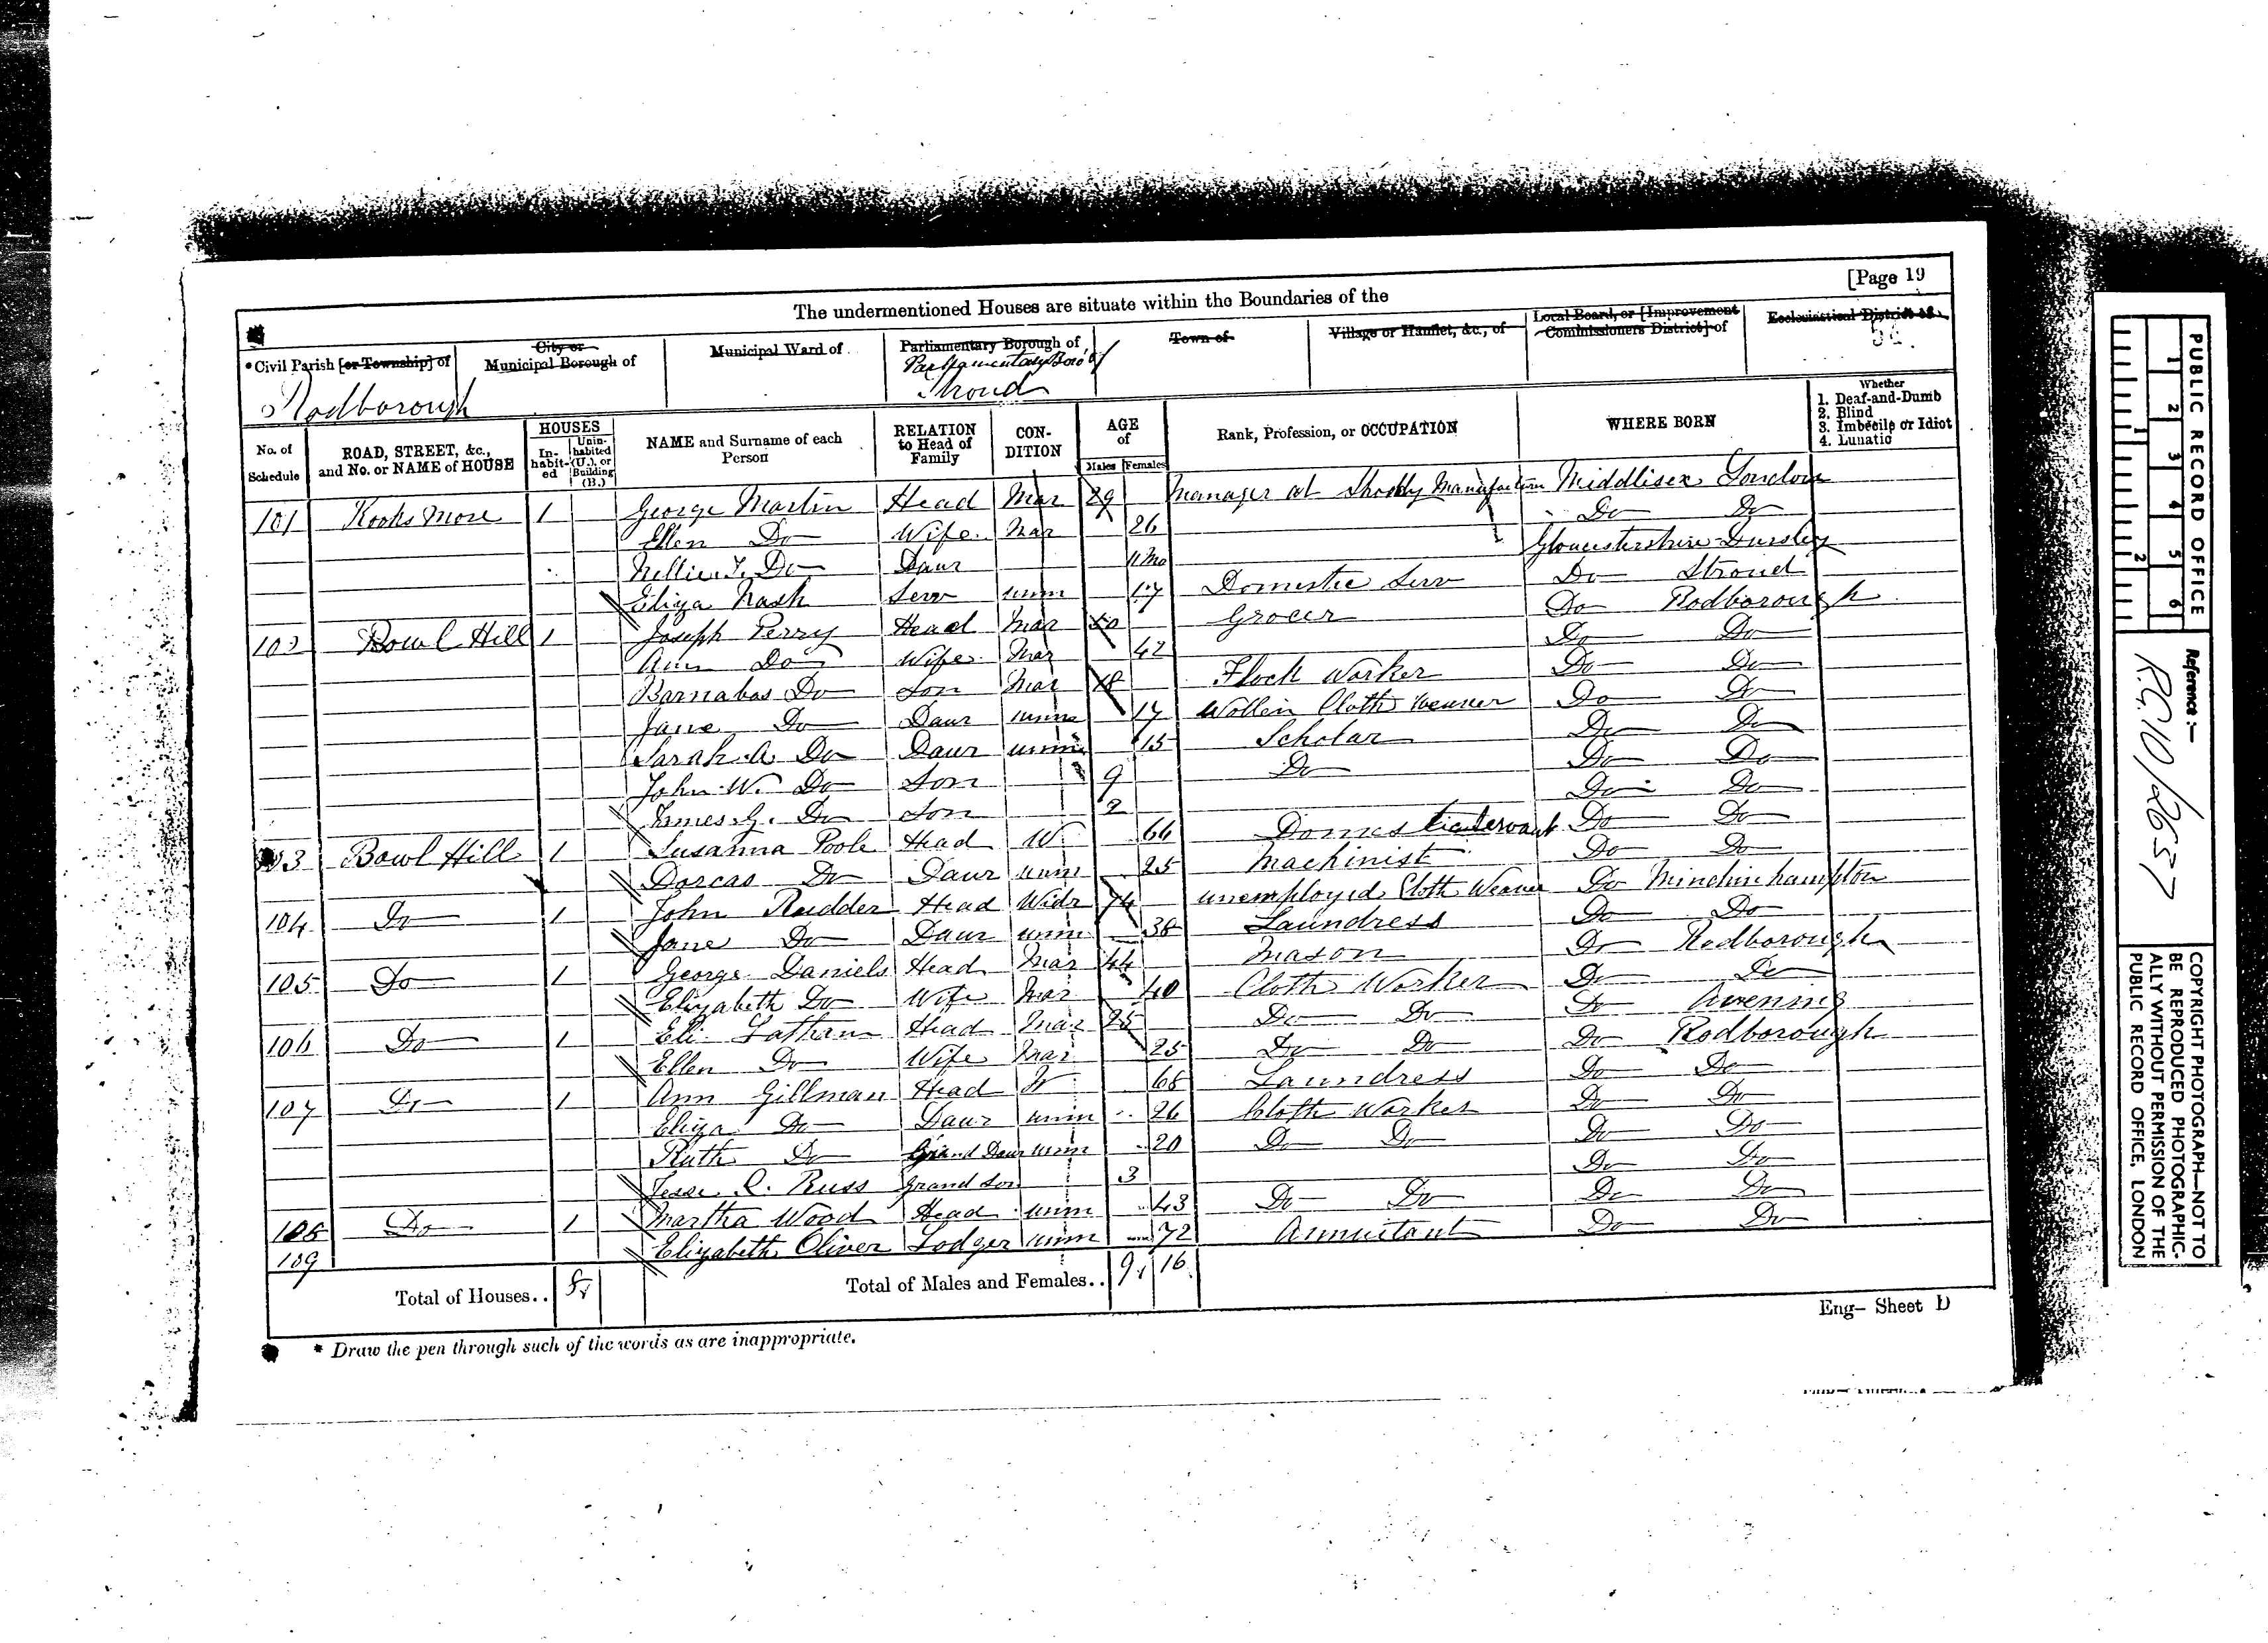 [Page 19
The undermentioned Houses are situate within the Boundaries of the
*Civil Parish [or Township] of
City or Municipal Borough of
Municipal Ward of
Parliamentary Borough of
Town of
Village or Hamlet, &c., of
Local Board, or [Improvement Commissioners District] of
Ecclesiastical District of
Rodborough
Parliamentary Boro' of
Stroud
No. of Schedule
ROAD, STREET, &c., and No. or NAME of HOUSE
HOUSES
In-habit-ed
Unin-habited (U.), or Building (B.)
NAME and Surname of each Person
RELATION to Head of Family
CON-DITION
AGE of
Males Females
Rank, Profession, or OCCUPATION
WHERE BORN
Whether
1. Deaf-and-Dumb
2. Blind
3. Imbecile or Idiot
4. Lunatic
101 Rooksmore 1 George Martin Head Mar 29 Manager at Shoddy Middlisex London
Ellen Do Wife Mar 26 Do Do
Do Daur 11 mo Gloucestershire Dursley
Eliza Nash Serv unm 17 Domestic Serv Do Stroud
102 Bowl Hill 1 Joseph Perry Head Mar Grocer Do Rodborough
Ann Do Wife Mar 42 Do Do
Barnabas Do Son Mar 18 Flock Worker Do Do
Jane Do Daur unm 17 Wollin Cloth Weaver Do Do
Sarah A. Do Daur unm 15 Scholar Do Do
John W. Do Son 9 Do Do Do
James G. Do Son 2 Do Do
103 Bowl Hill 1 Susanna Poole Head W 66 Domestic Servant Do Do
Dorcas Do Daur unm 25 Machinist Do Do
104 Do 1 John Rudder Head Widr 74 unemployed Cloth Weaver Do Minchinhampton
Jane Do Daur unm 38 Laundress Do Do
105 Do 1 George Daniels Head Mar 44 Mason Do Rodborough
Elizabeth Do Wife Mar 40 Cloth Worker Do Do
106 Do 1 Eli Latham Head Mar 25 Do Do Do Avening
Ellen Do Wife Mar 25 Do Do Do Rodborough
107 Do 1 Ann Gillman Head W 68 Laundress Do Do
Eliza Do Daur unm 26 Cloth Worker Do Do
Ruth Do Grand Daur unm 20 Do Do Do Do
Jesse C. Russ Grand Son 3 Do Do
108 Do 1 Martha Wood Head unm 43 Do Do Do Do
109 Elizabeth Oliver Lodger unm 72 Annuitant Do Do
Total of Houses..
Total of Males and Females.. 9 16
Eng— Sheet D
* Draw the pen through such of the words as are inappropriate.
PUBLIC RECORD OFFICE
1 2 3 4 5 6
1 2
Reference :—
R.G. 10/2657
COPYRIGHT PHOTOGRAPH—NOT TO
BE REPRODUCED PHOTOGRAPHIC-
ALLY WITHOUT PERMISSION OF THE
PUBLIC RECORD OFFICE, LONDON